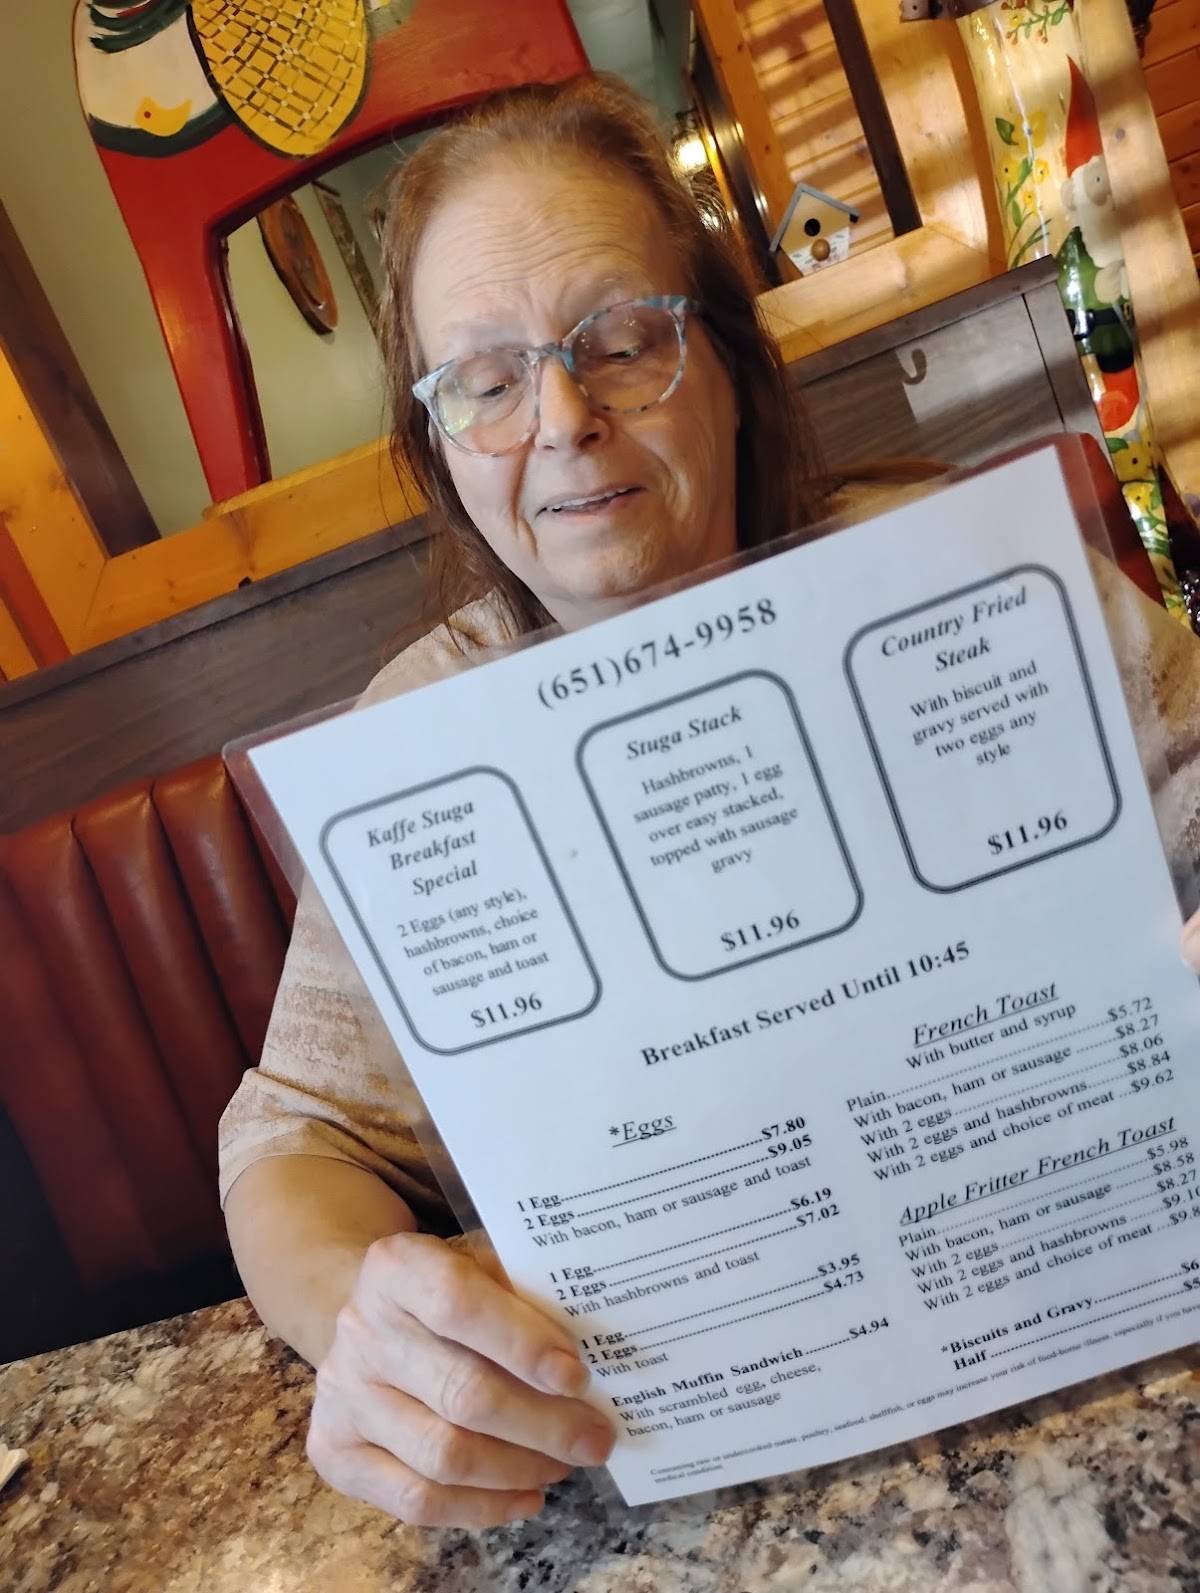 (651)674-9958
Kaffe Stuga
Breakfast
Special
2 Eggs (any style),
hashbrowns, choice
of bacon, ham or
sausage and toast
$11.96
Stuga Stack
Hashbrowns, 1
sausage patty, 1 egg
over easy stacked,
topped with sausage
gravy
$11.96
Country Fried
Steak
With biscuit and
gravy served with
two eggs any
style
$11.96
Breakfast Served Until 10:45
*Eggs
1 Egg....................$7.80
2 Eggs....................$9.05
With bacon, ham or sausage and toast
1 Egg....................$6.19
2 Eggs....................$7.02
With hashbrowns and toast
1 Egg....................$3.95
2 Eggs....................$4.73
With toast
English Muffin Sandwich..........$4.94
With scrambled egg, cheese,
bacon, ham or sausage
French Toast
With butter and syrup
Plain....................$5.72
With bacon, ham or sausage ........$8.27
With 2 eggs....................$8.06
With 2 eggs and hashbrowns........$8.84
With 2 eggs and choice of meat ...$9.62
Apple Fritter French Toast
Plain....................$5.98
With bacon, ham or sausage ........$8.58
With 2 eggs....................$8.27
With 2 eggs and hashbrowns .......$9.10
With 2 eggs and choice of meat ...$9.8
*Biscuits and Gravy....................$6
Half ....................$5
Consuming raw or undercooked meats, poultry, seafood, shellfish, or eggs may increase your risk of food-borne illness, especially if you have
medical condition.